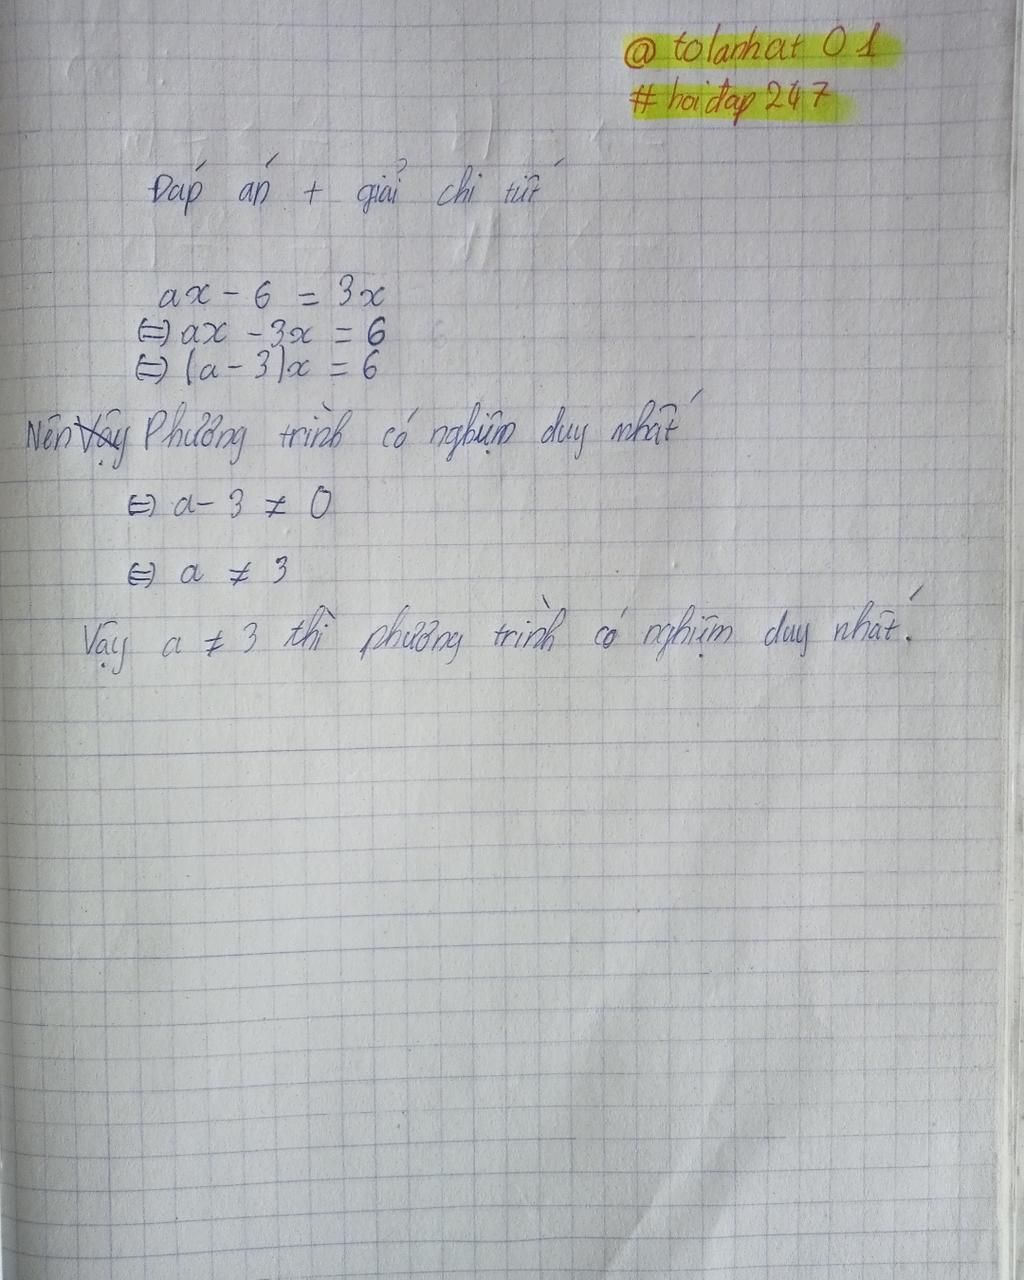 @ tolanhat 01
# hoidap 247
Đáp án + giải chi tiết
ax - 6 = 3x
⇔ ax - 3x = 6
⇔ (a - 3)x = 6
Nên Vậy Phương trình có nghiệm duy nhất
⇔ a - 3 ≠ 0
⇔ a ≠ 3
Vậy a ≠ 3 thì phương trình có nghiệm duy nhất.